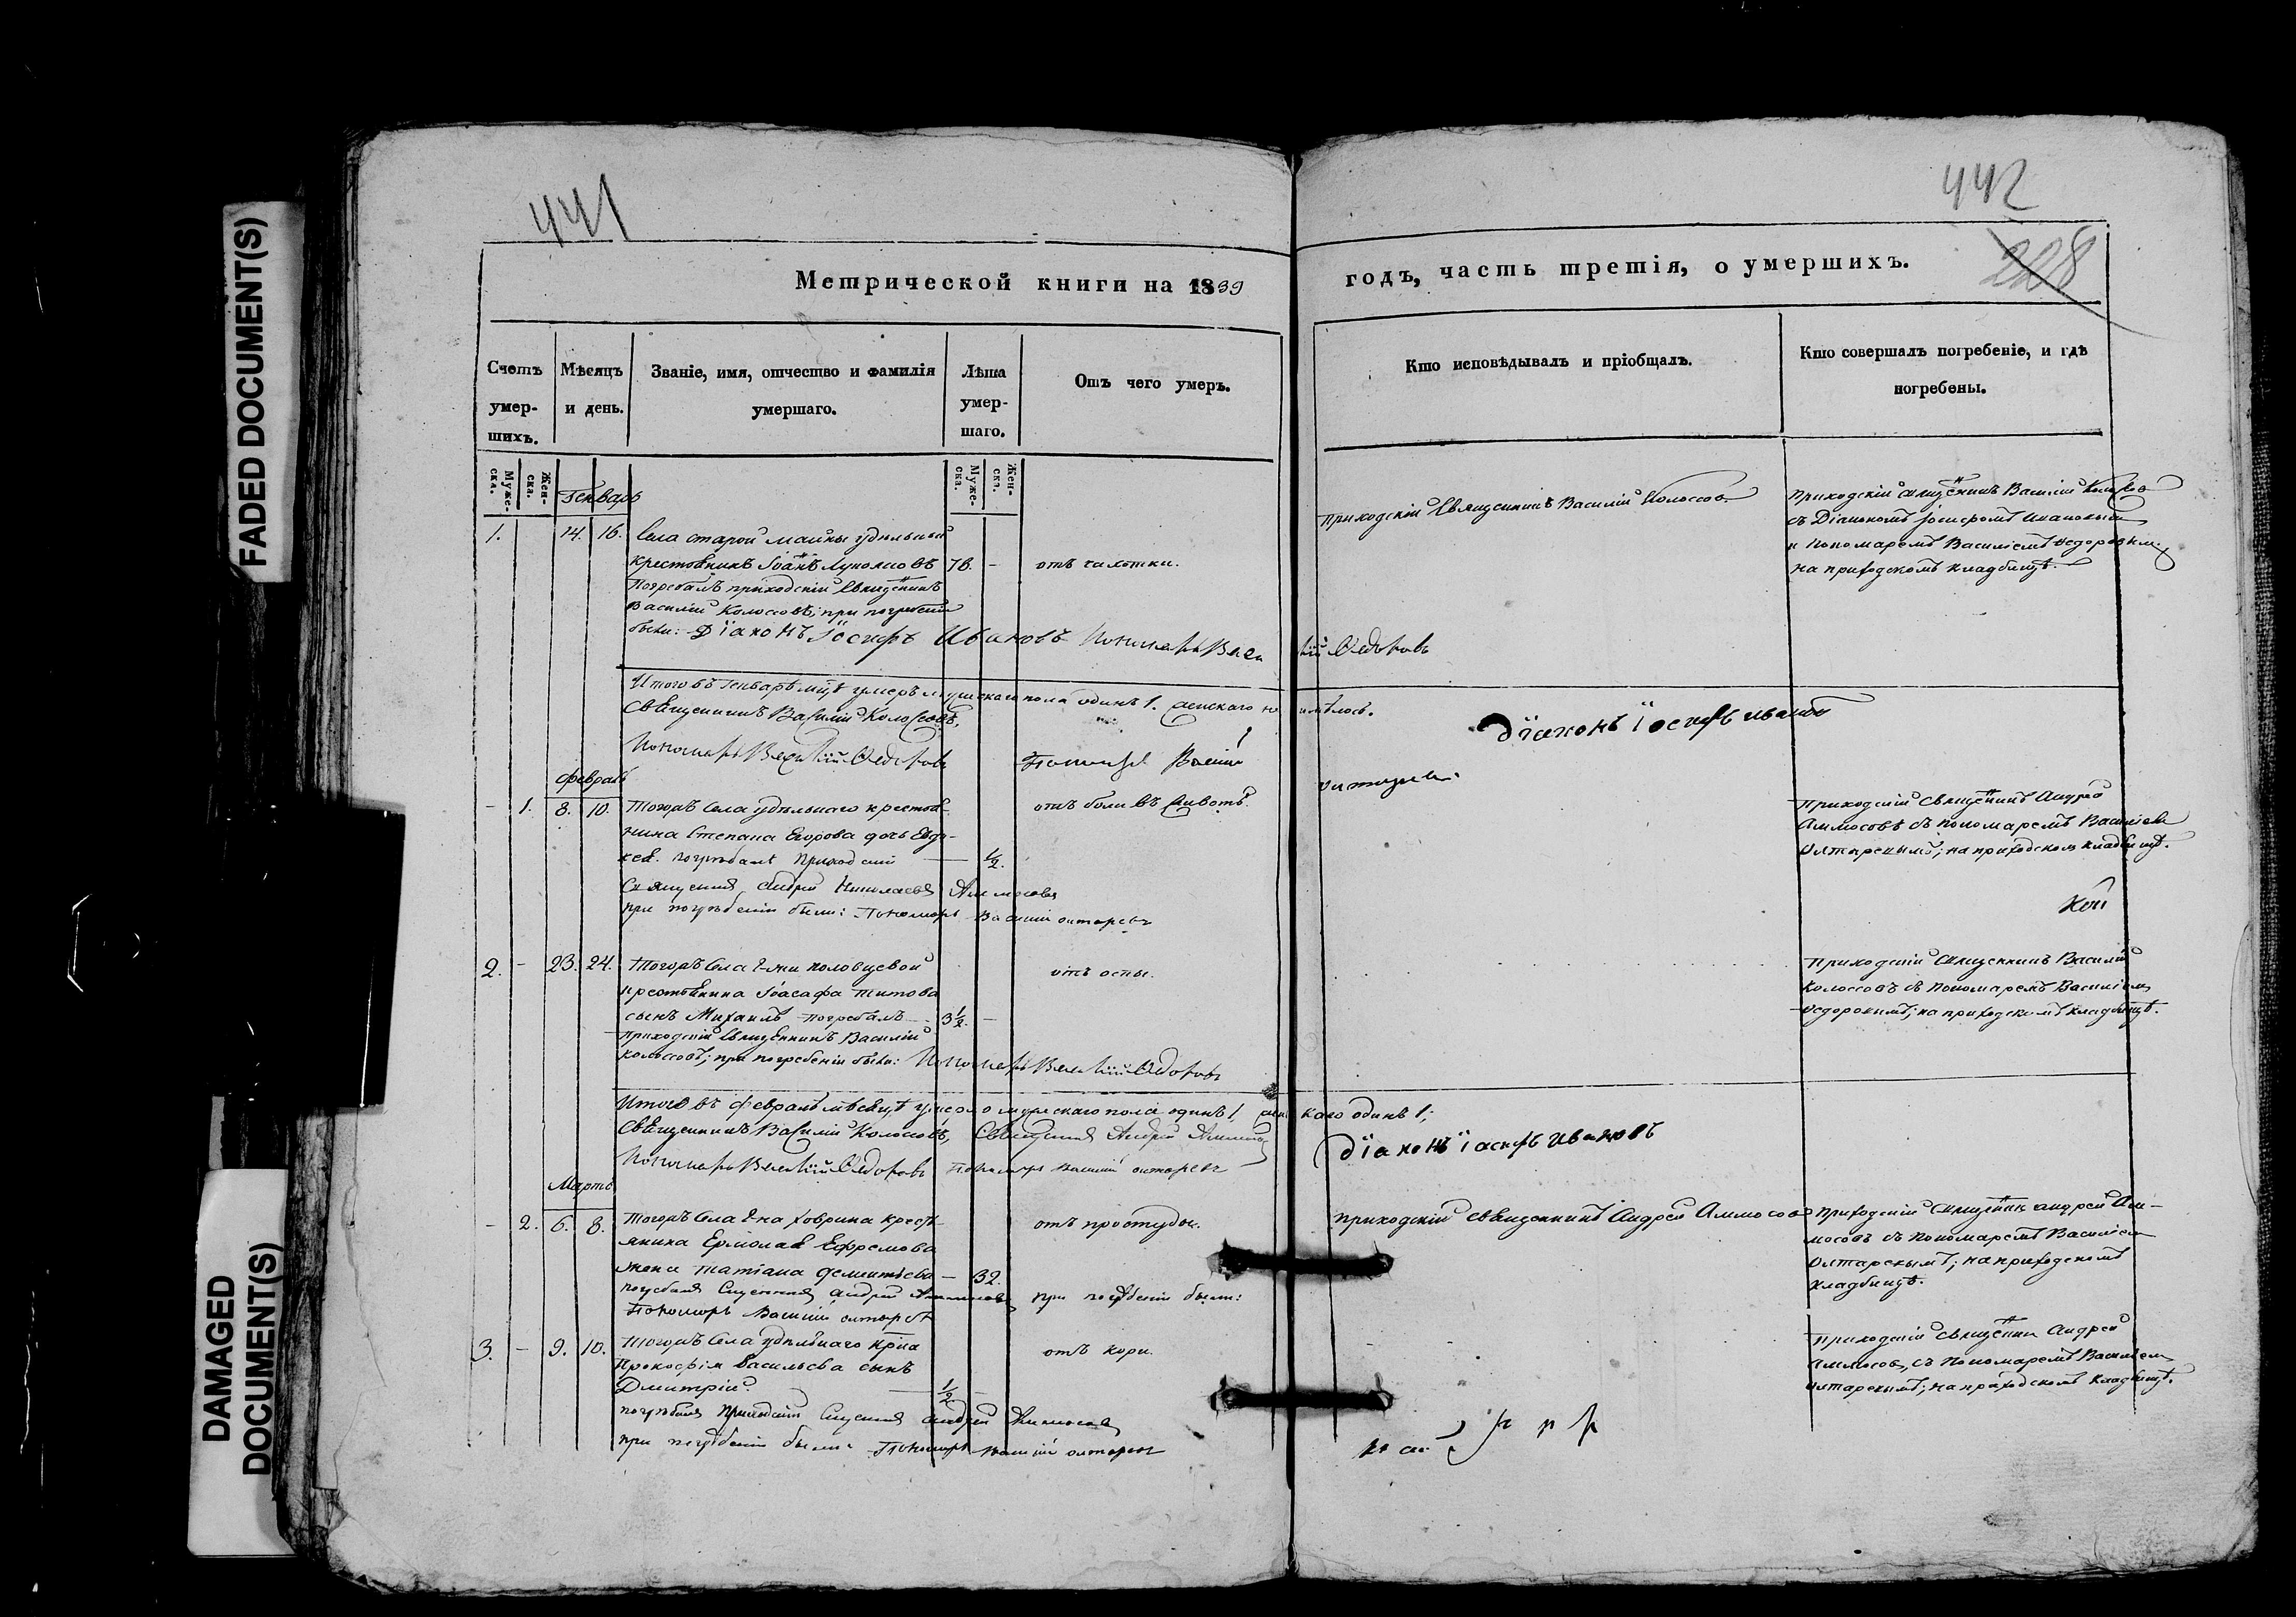 FADED DOCUMENT(S)
DAMAGED
DOCUMENT(S)
441
442
228
Метрической книги на 1839
годъ, часть третія, о умершихъ.
Счетъ умер-шихъ.
Мѣсяцъ и день.
Званіе, имя, отчество и фамилія умершаго.
Лѣта умер-шаго.
Отъ чего умеръ.
Кто исповѣдывалъ и пріобщалъ.
Кто совершалъ погребеніе, и гдѣ погребены.
Муже-ска.
Жен-ска.
Муже-ска.
Жен-ска.
Генварь
1. 14. 16. Села старой майны удѣльный
крестьянинъ Іоаннъ 78. - отъ чахотки.
Погребалъ приходскій Священникъ
Василій Колосовъ; при погребеніи
были: Діаконъ Іосифъ Ивановъ Пономарь Василій Ѳедоровъ
Приходскій Священникъ Василій Колосовъ
Приходскій священникъ Василій Колосовъ
съ Діакономъ Іосифомъ Ивановымъ
и Пономаремъ Василіемъ Ѳедоровым.
на приходскомъ кладбищѣ.
Итого въ Генварѣ мцѣ умеръ мужскаго пола одинъ 1. женскаго не имѣлось.
Священникъ Василій Колосовъ,
Діаконъ Іосифъ Ивановъ
Пономарь Василій Ѳедоровъ
Пономарь Василій
февраль
- 1. 8. 10. Тогожъ Села удѣльнаго крестья-
нина Степана Егорова дочь Евдо-
кея. погребалъ Приходскій — 1/2.
Священникъ Андрей Николаевъ Аммосовъ
при погребеніи были: Пономарь Василій олтаревъ
отъ боли въ животѣ.
Приходскій священникъ Андрей
Аммосовъ съ пономаремъ Василіем
Олтаревымъ; на приходскомъ кладбищѣ.
2. - 23. 24. Тогожъ Села Г-жи половцевой
крестьянина Іоасафа Титова
сынъ Михаилъ погребалъ 3 1/2. -
приходскій священникъ Василій
Колосовъ; при погребеніи были: Пономарь Василій Ѳедоровъ
отъ оспы.
Приходскій священникъ Василій
Колосовъ съ Пономаремъ Василіем
Ѳедоровымъ; на приходскомъ кладбищѣ.
Итого въ февралѣ мѣсяцѣ умерло мужскаго пола одинъ 1, женскаго одинъ 1;
Священникъ Василій Колосовъ, Священникъ Андрей Аммосовъ
Діаконъ Іосифъ Ивановъ
Пономарь Василій Ѳедоровъ Пономарь Василій олтаревъ
Мартъ
- 2. 6. 8. Тогожъ Села Г-на ховрина кресть-
янина Ермолая Ефремова
жена Татіана Дементьева — 32.
погребалъ Священникъ Андрей Аммосовъ при погребеніи были:
Пономарь Василій олтаревъ
отъ простуды.
Приходскій священникъ Андрей Аммосовъ
Приходскій священникъ андрей Ам-
мосовъ съ Пономаремъ Василіем
Олтаревымъ; на приходскомъ
кладбищѣ.
3. - 9. 10. Тогожъ Села удѣльнаго
Прокофія Васильева сынъ
Дмитрій. — 1/2 -
погребалъ Приходскій Священникъ андрей Аммосовъ
при погребеніи были: Пономарь Василій олтаревъ
отъ кори.
Приходскій священникъ Андрей
Аммосов, съ Пономаремъ Василіем
олтаревымъ; на приходскомъ кладбищѣ.